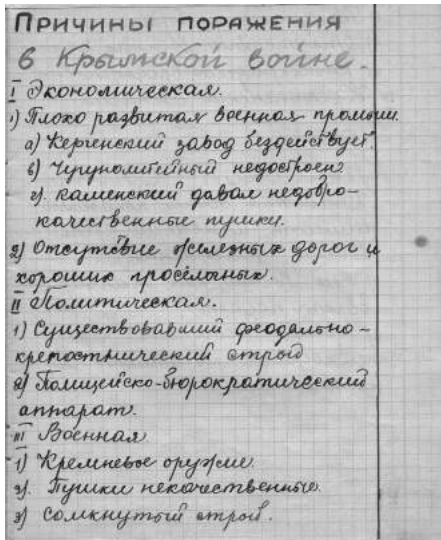 Причины поражения
в Крымской войне.
I Экономическая.
1) Плохо развитая военная промышл.
а) Керченский завод бездействует.
в) Чугунолитейный недостроен
г). Каменский давал недобро-
качественные пушки.
2) Отсутствие железных дорог и
хороших просёлочных.
II Политическая.
1) Существовавший феодально-
крепостнический строй
2) Полицейско-бюрократический
аппарат.
III Военная
1) Кремневое оружие.
2). Пушки некачественные.
3) Сомкнутый строй.